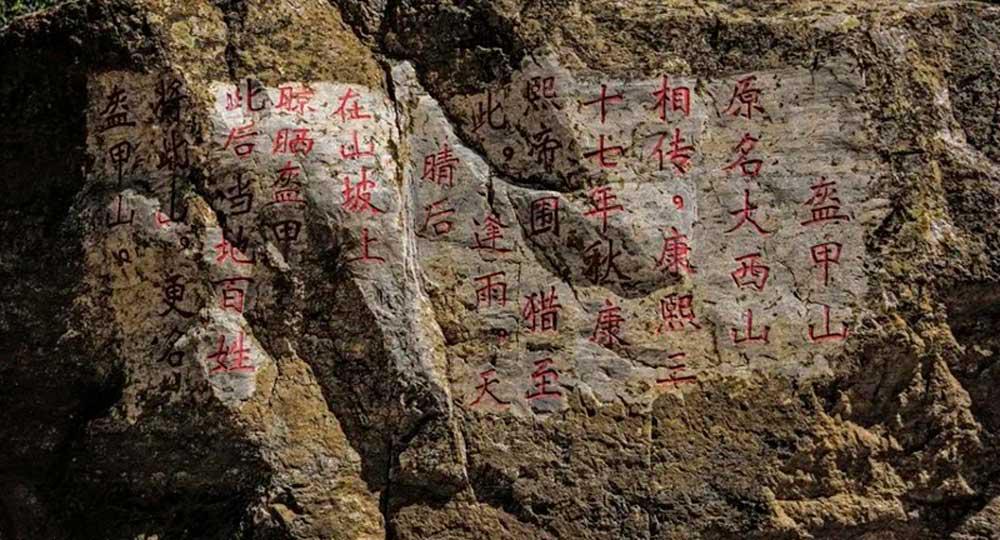 盔甲山
原名大西山
相传，康熙三
十七年秋康
熙帝围猎至
此，逢雨。天
晴后
在山坡上
晾晒盔甲
此后当地百姓
将此山。更名
盔甲山。